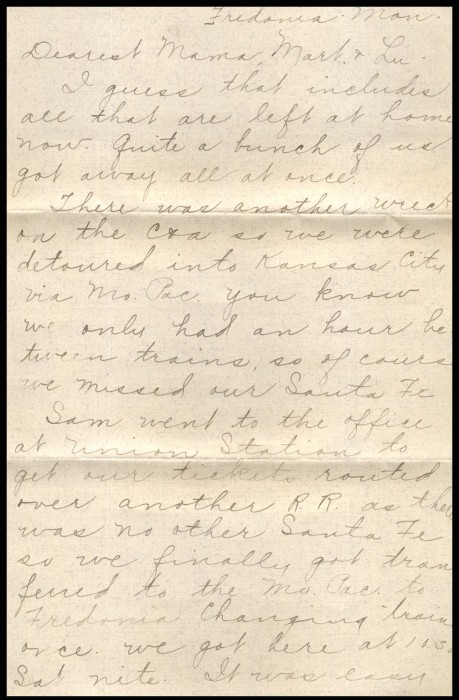 Fredonia. Mon.
Dearest Mama, Mart. & Lu.
I guess that includes
all that are left at home
now. Quite a bunch of us
got away all at once.
There was another wreck
on the C&A so we were
detoured into Kansas City
via Mo. Pac. You know
we only had an hour be
tween trains, so of cours
we missed our Santa Fe
Sam went to the office
at Union Station to
get our tickets routed
over another R.R. as ther
was no other Santa Fe
so we finally got tran
ferred to the Mo. Pac. to
Fredonia Changing train
once. We got here at
Sat nite. It was easy